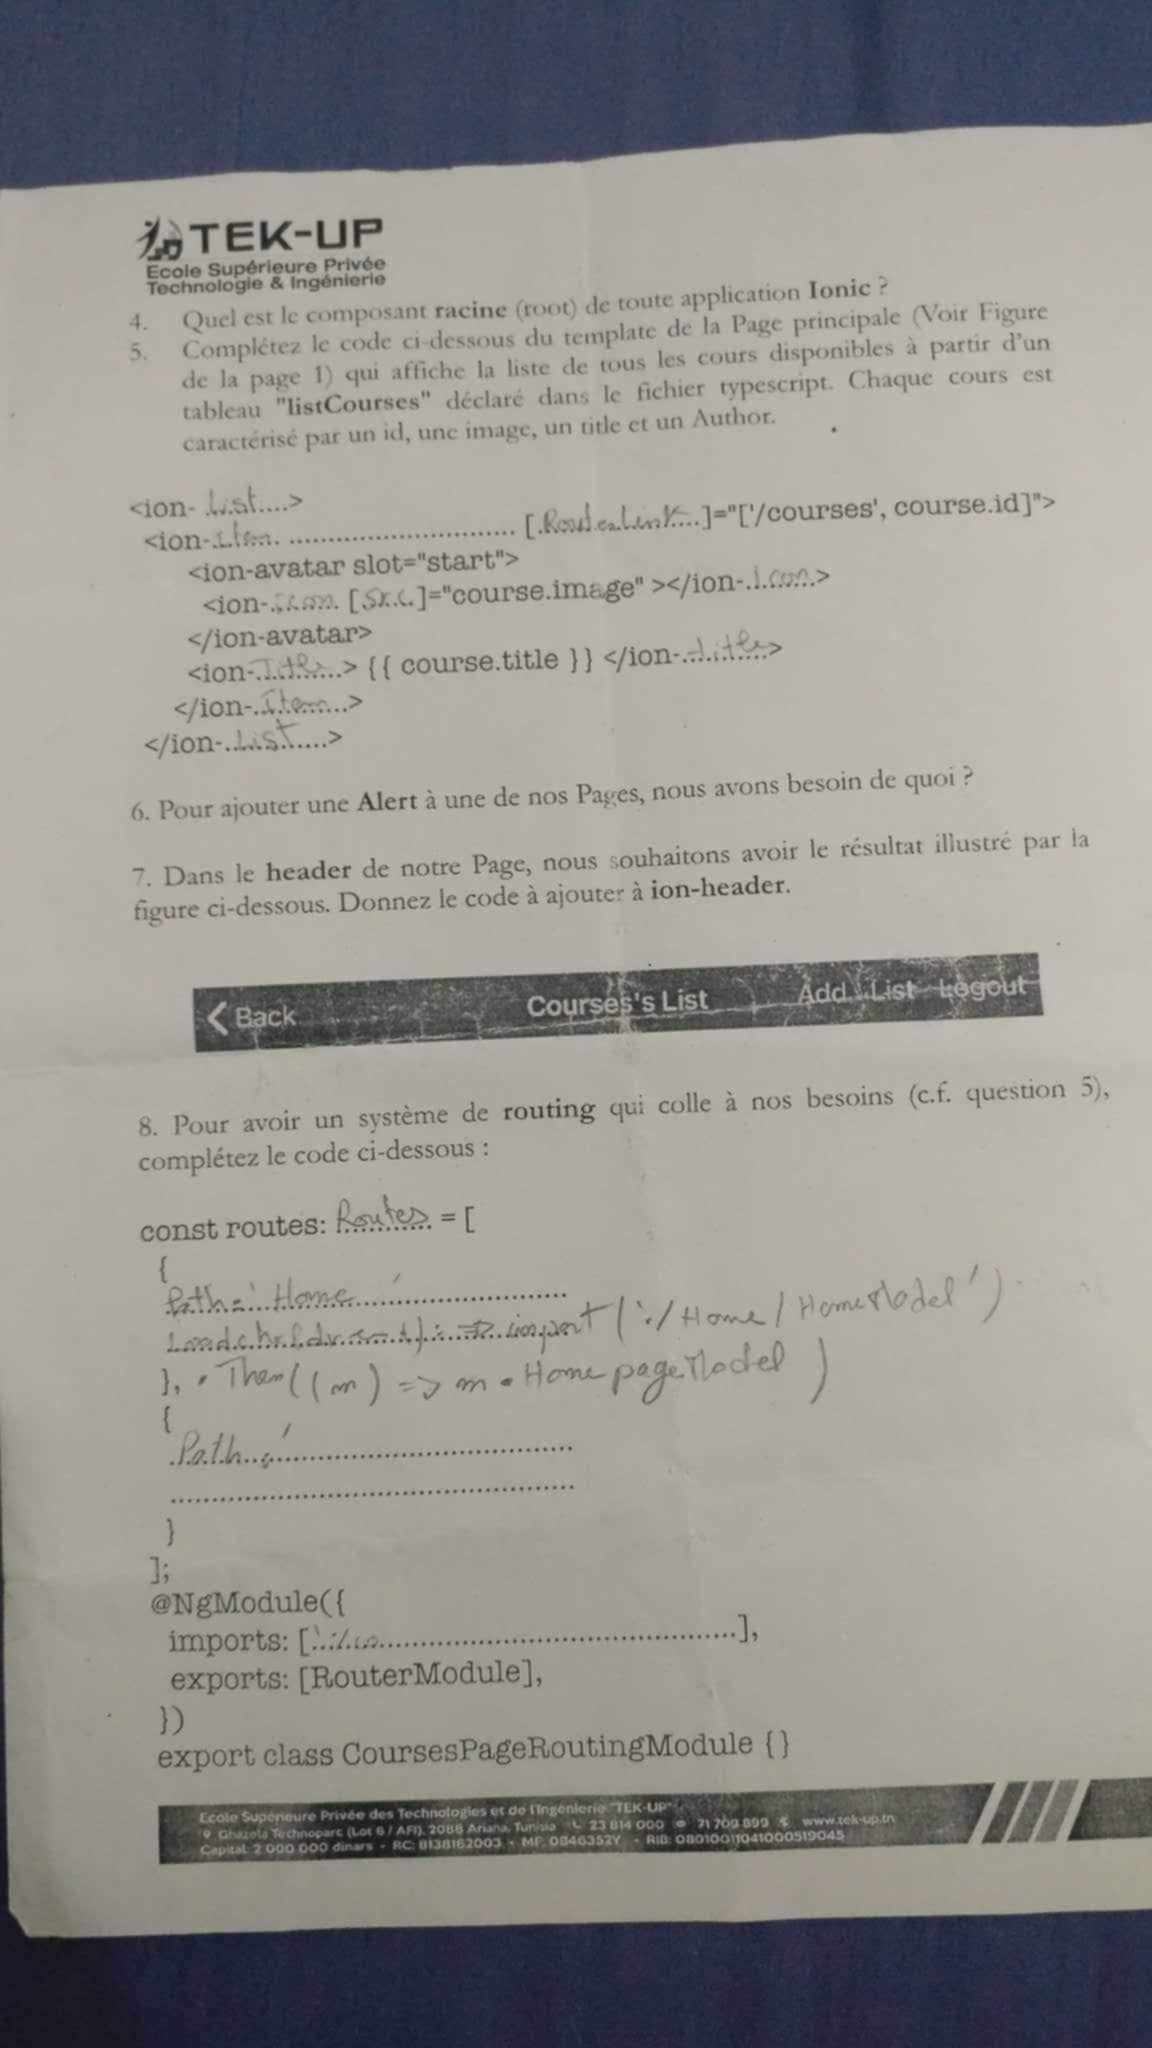 TEK-UP
Ecole Supérieure Privée
Technologie & Ingénierie
4. Quel est le composant racine (root) de toute application Ionic ?
5. Complétez le code ci-dessous du template de la Page principale (Voir Figure
de la page 1) qui affiche la liste de tous les cours disponibles à partir d'un
tableau "listCourses" déclaré dans le fichier typescript. Chaque cours est
caractérisé par un id, une image, un title et un Author.
<ion- List....>
<ion-.item. .............................. [.RouterLink...]="['/courses', course.id]">
<ion-avatar slot="start">
<ion-.icon. [Src.]="course.image" ></ion-.icon.>
</ion-avatar>
<ion-.Title...> {{ course.title }} </ion-..title>
</ion-..Item....>
</ion-..List.....>
6. Pour ajouter une Alert à une de nos Pages, nous avons besoin de quoi ?
7. Dans le header de notre Page, nous souhaitons avoir le résultat illustré par la
figure ci-dessous. Donnez le code à ajouter à ion-header.
Back Courses's List Add List Logout
8. Pour avoir un système de routing qui colle à nos besoins (c.f. question 5),
complétez le code ci-dessous :
const routes: Routes = [
{
Path=' Home '..............................
=> import ('./Home/HomeModel').
}, . Then((m) => m.HomepageModel)
{
Path :'..............................
..............................
}
];
@NgModule({
imports: [..............................],
exports: [RouterModule],
})
export class CoursesPageRoutingModule {}
Ecole Supérieure Privée des Technologies et de l'Ingénierie "TEK-UP"
Ghazela Technoparc (Lot 6 / AFI), 2088 Ariana, Tunisia 23 814 000 71 709 899 www.tek-up.tn
Capital: 2 000 000 dinars - RC: B138162003 - MF: 0846352Y - RIB: 08010011041000519045